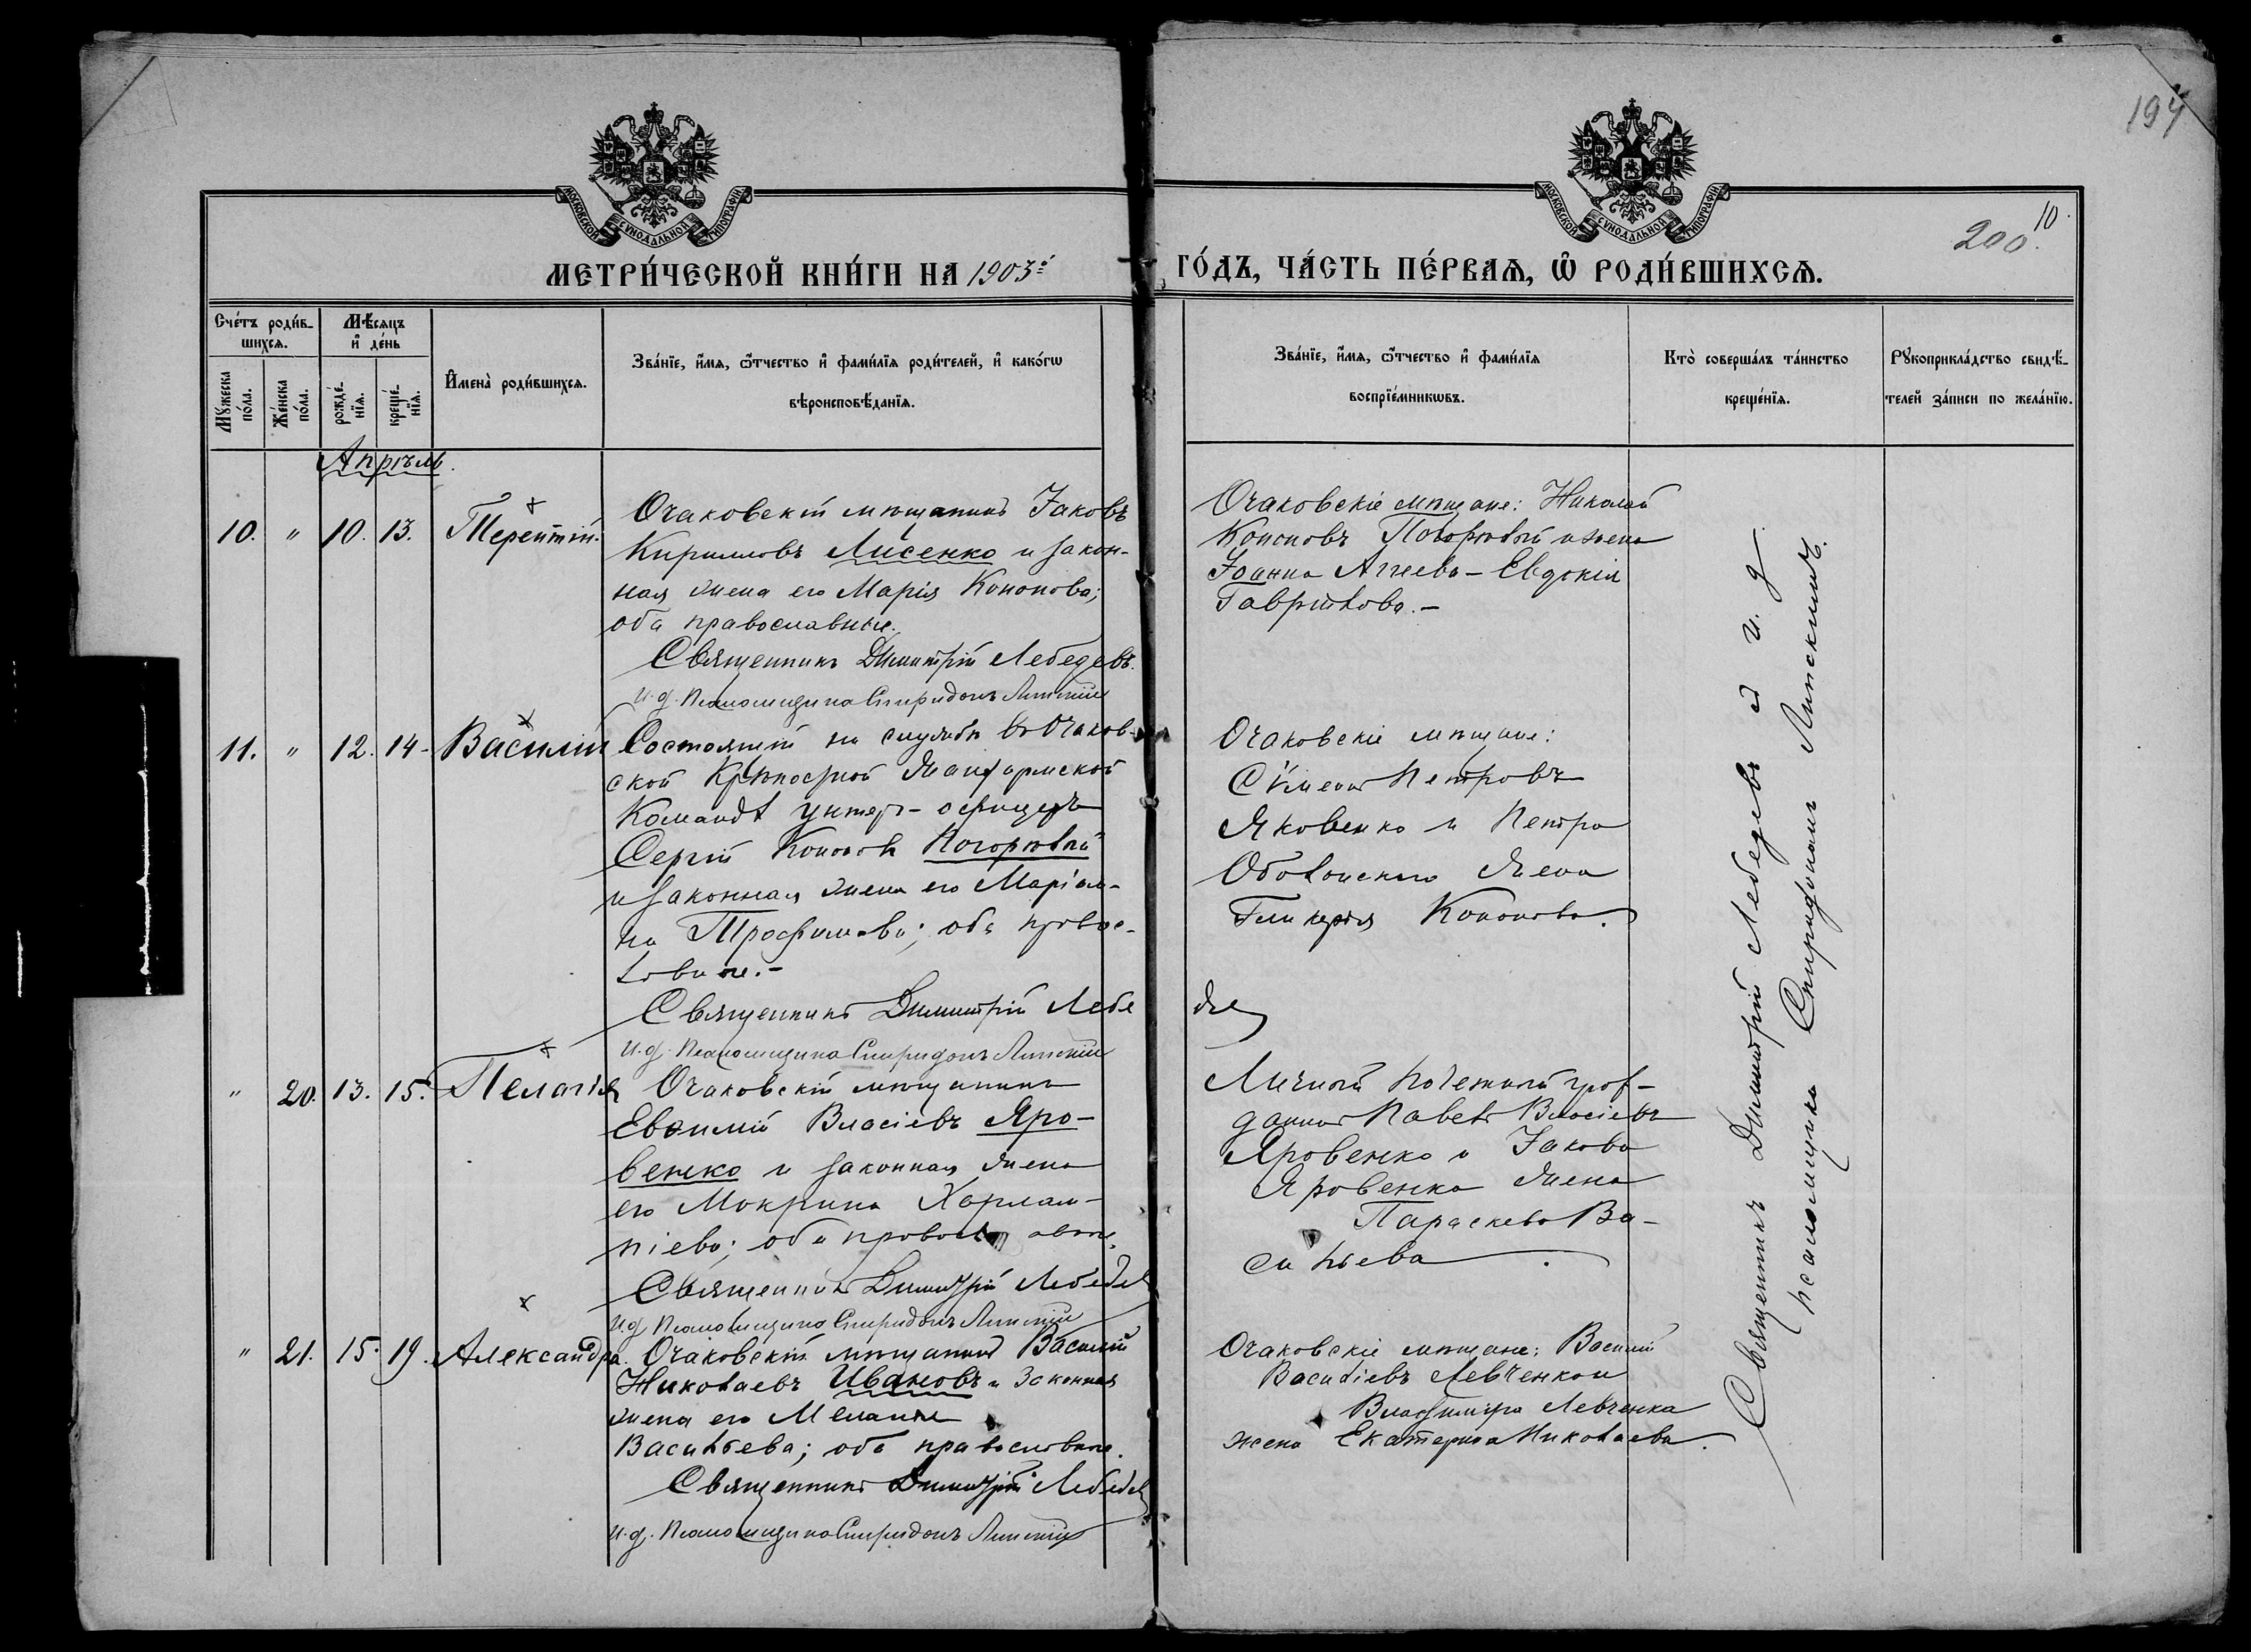 194
МОСКОВСКОЙ СѴНОДАЛЬНОЙ ТИПОГРАФІИ
МОСКОВСКОЙ СѴНОДАЛЬНОЙ ТИПОГРАФІИ
10.
200.
МЕТРИ́ЧЕСКОЙ КНИ́ГИ НА 1903й
ГО́ДЪ, ЧА́СТЬ ПЕ́РВАѦ, Ѽ РОДИ́ВШИХСѦ.
Сче́тъ роди́в-
шихсѧ.
Мѣ́сѧцъ
и҆ де́нь
Мꙋ́жеска по́ла.
Же́нска по́ла.
рожде́-
нїѧ.
креще́-
нїѧ.
И҆мена̀ роди́вшихсѧ.
Зва́нїе, и҆́мѧ, ѻ҆́тчество и҆ фами́лїѧ роди́телей, и҆ како́гѡ
вѣроисповѣ́данїѧ.
Зва́нїе, и҆́мѧ, ѻ҆́тчество и҆ фами́лїѧ
воспрїе́мникѡвъ.
Кто̀ соверша́лъ та́инство
креще́нїѧ.
Рꙋкоприкла́дство свидѣ́-
телей за́писи по жела́нїю.
Апрѣль.
10. " 10. 13. Терентій.
Очаковскій мѣщанинъ Іаковъ
Кирилловъ Лисенко и закон-
ная жена его Марія Кононова;
оба православные.
Священникъ Димитрій Лебедевъ.
И. д. Псаломщика Спиридонъ Липскій
Очаковскіе мѣщане: Николай
Кононовъ Погорѣлый и жена
Іоанна Агеева - Евдокія
Гаврилова. -
11. " 12. 14. Василій
Состоящій на службѣ въ Очаков-
ской Крѣпостной Жандармской
Командѣ унтер-офицеръ
Сергій Кононовъ Погорѣлый
и законная жена его Маріан-
на Трофимова; оба правос-
лавные. -
Священникъ Димитрій Лебе
дев
И. д. Псаломщика Спиридонъ Липскій
Очаковскіе мѣщане:
Сѵмеонъ Петровъ
Яковенко и Петра
жена
Гликерія Кононова.
" 20. 13. 15. Пелагія
Очаковскій мѣщанинъ
Евѳимій Власіевъ Яро-
венко и законная жена
его Мокрина Харлам-
піева; оба православные.
Священникъ Димитрій Лебедев
И. д. Псаломщика Спиридонъ Липскій
Личный почетный граж-
данинъ Павелъ Власіевъ
Яровенко и Іакова
Яровенка жена
Параскева Ва-
сильева.
" 21. 15. 19. Александра.
Очаковскій мѣщанинъ Василій
Николаевъ Ивановъ и законная
жена его Меланія
Васильева; оба православные.
Священникъ Димитрій Лебедев
И. д. Псаломщика Спиридонъ Липскій
Очаковскіе мѣщане: Василій
Василіевъ Левченко и
Владиміра Левченка
жена Екатерина Николаева.
Священникъ Димитрій Лебедевъ съ и. д.
псаломщика Спиридономъ Липскимъ.